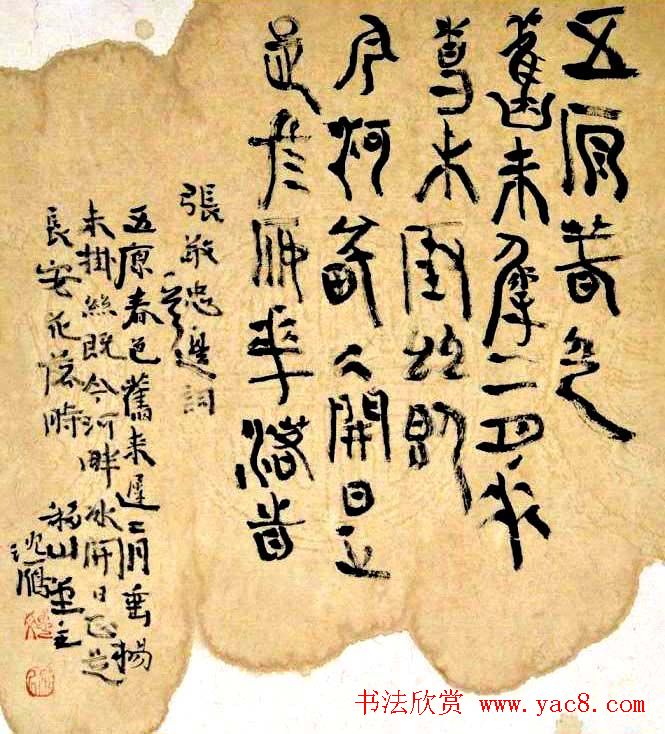 五原春色
舊來遲二月垂
楊未掛絲即
今河畔冰開日正
是長安花落時
張敬忠邊詞
五原春色舊来遲二月垂楊
未掛絲既今河畔冰開日正是
長安花落時
山
书法欣赏 www.yac8.com